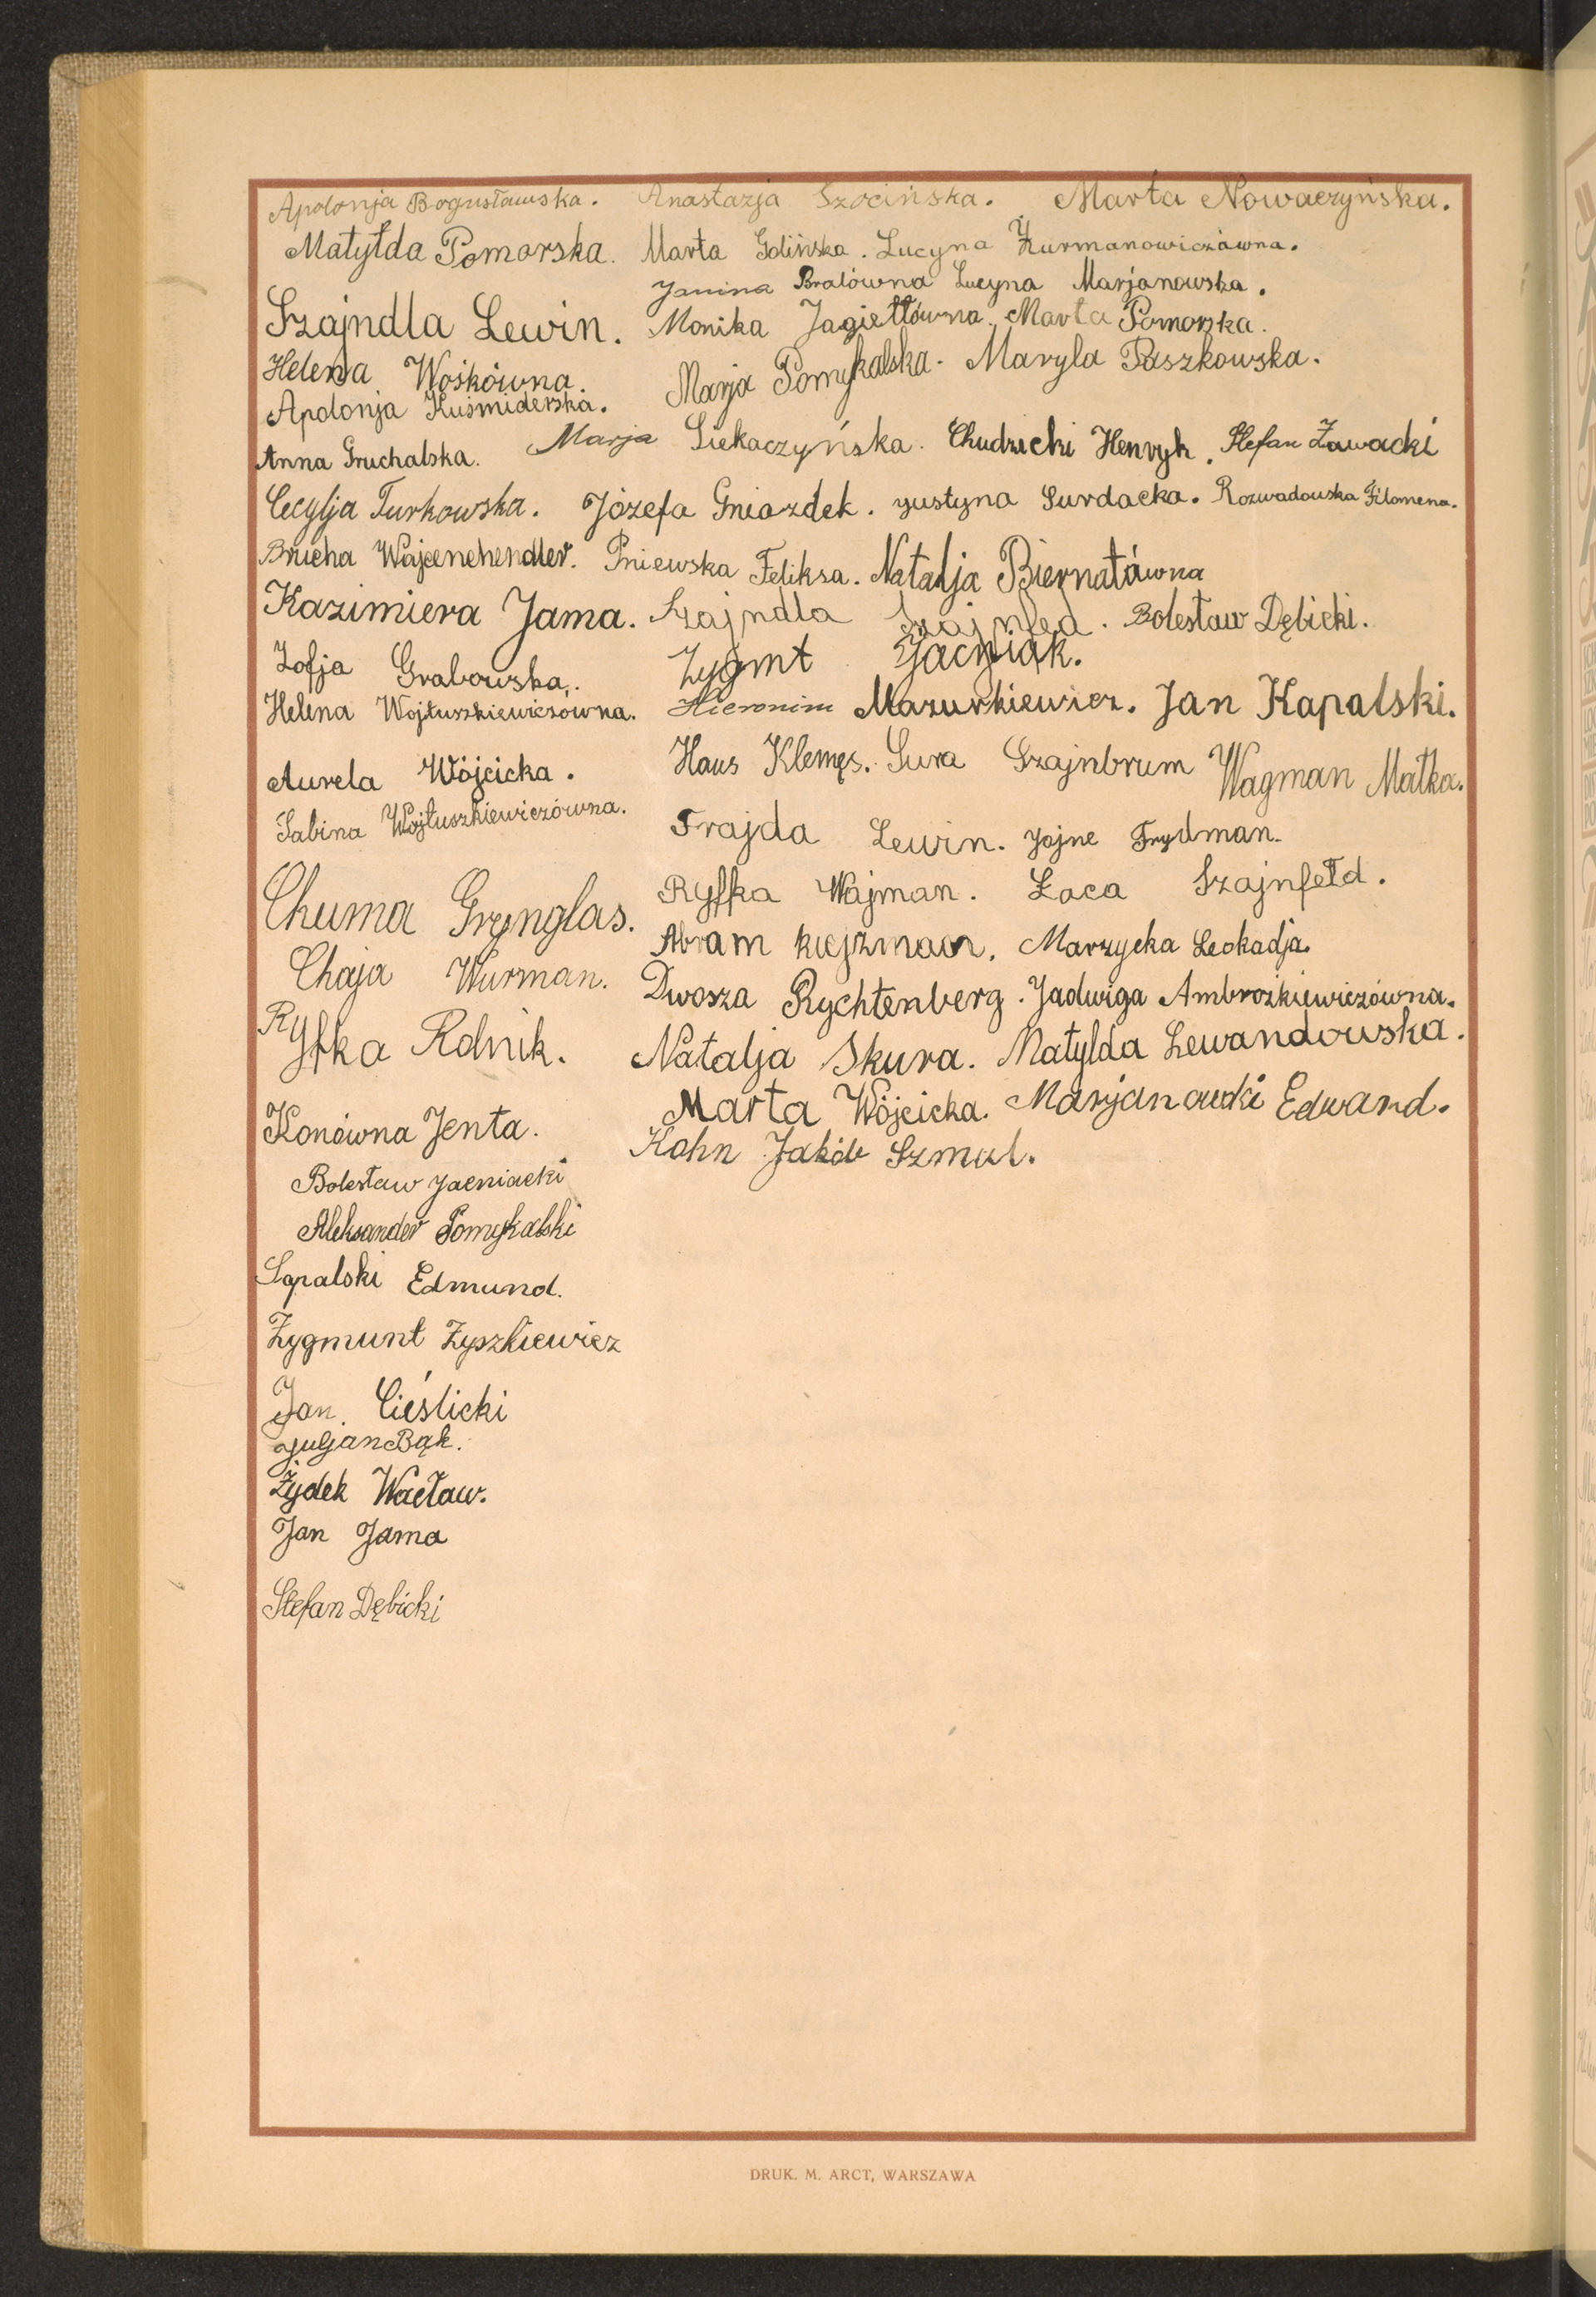 Apolonja Bogusławska. Anastazja Szocińska. Marta Nowaczyńska.
Matyłda Pomorska. Marta Golińska. Lucyna Żurmanowiczówna.
Janina Bralówna Lucyna Marjanowska.
Szajndla Lewin. Monika Jagiełłówna. Marta Pomorska.
Helena Wośkówna. Marja Pomykalska. Maryla Paszkowska.
Apolonja Kuśmiderska.
Anna Gruchalska. Marja Siekaczyńska. Chudzicki Henryk. Stefan Zawacki
Cecylja Turkowska. Józefa Gniazdek. Justyna Surdacka. Rozwadowska Filomena.
Brucha Wajcenchendler. Pniewska Feliksa. Natalja Biernatówna
Kazimiera Jama. Szajndla Szajnfed. Bolesław Dębicki.
Zofja Grabowska. Zygmt Jacniak.
Helena Wojtuszkiewiczówna. Hieronim Mazurkiewicz. Jan Kapalski.
Aurela Wójcicka. Haus Klemęs. Sura Szajnbrum Wagman Matka.
Sabina Wojtuszkiewiczówna. Frajda Lewin. Jojne Frydman.
Chuma Grynglas. Ryfka Wajman. Łaca Szajnfełd.
Chaja Wurman. Abram Kiejzman. Marzycka Leokadja.
Ryfka Rolnik. Dwosza Rychtenberg. Jadwiga Ambrożkiewiczówna.
Natalja Skura. Matylda Lewandowska.
Konówna Jenta. Marta Wójcicka. Marjanowski Edward.
Kohn Jakób Szmul.
Bolesław Jacniacki
Aleksander Pomykalski
Sapalski Edmund.
Zygmunt Zyszkiewicz
Jan Cieślicki
Juljan Bąk.
Żydek Wacław.
Jan Jama
Stefan Dębicki
DRUK. M. ARCT, WARSZAWA